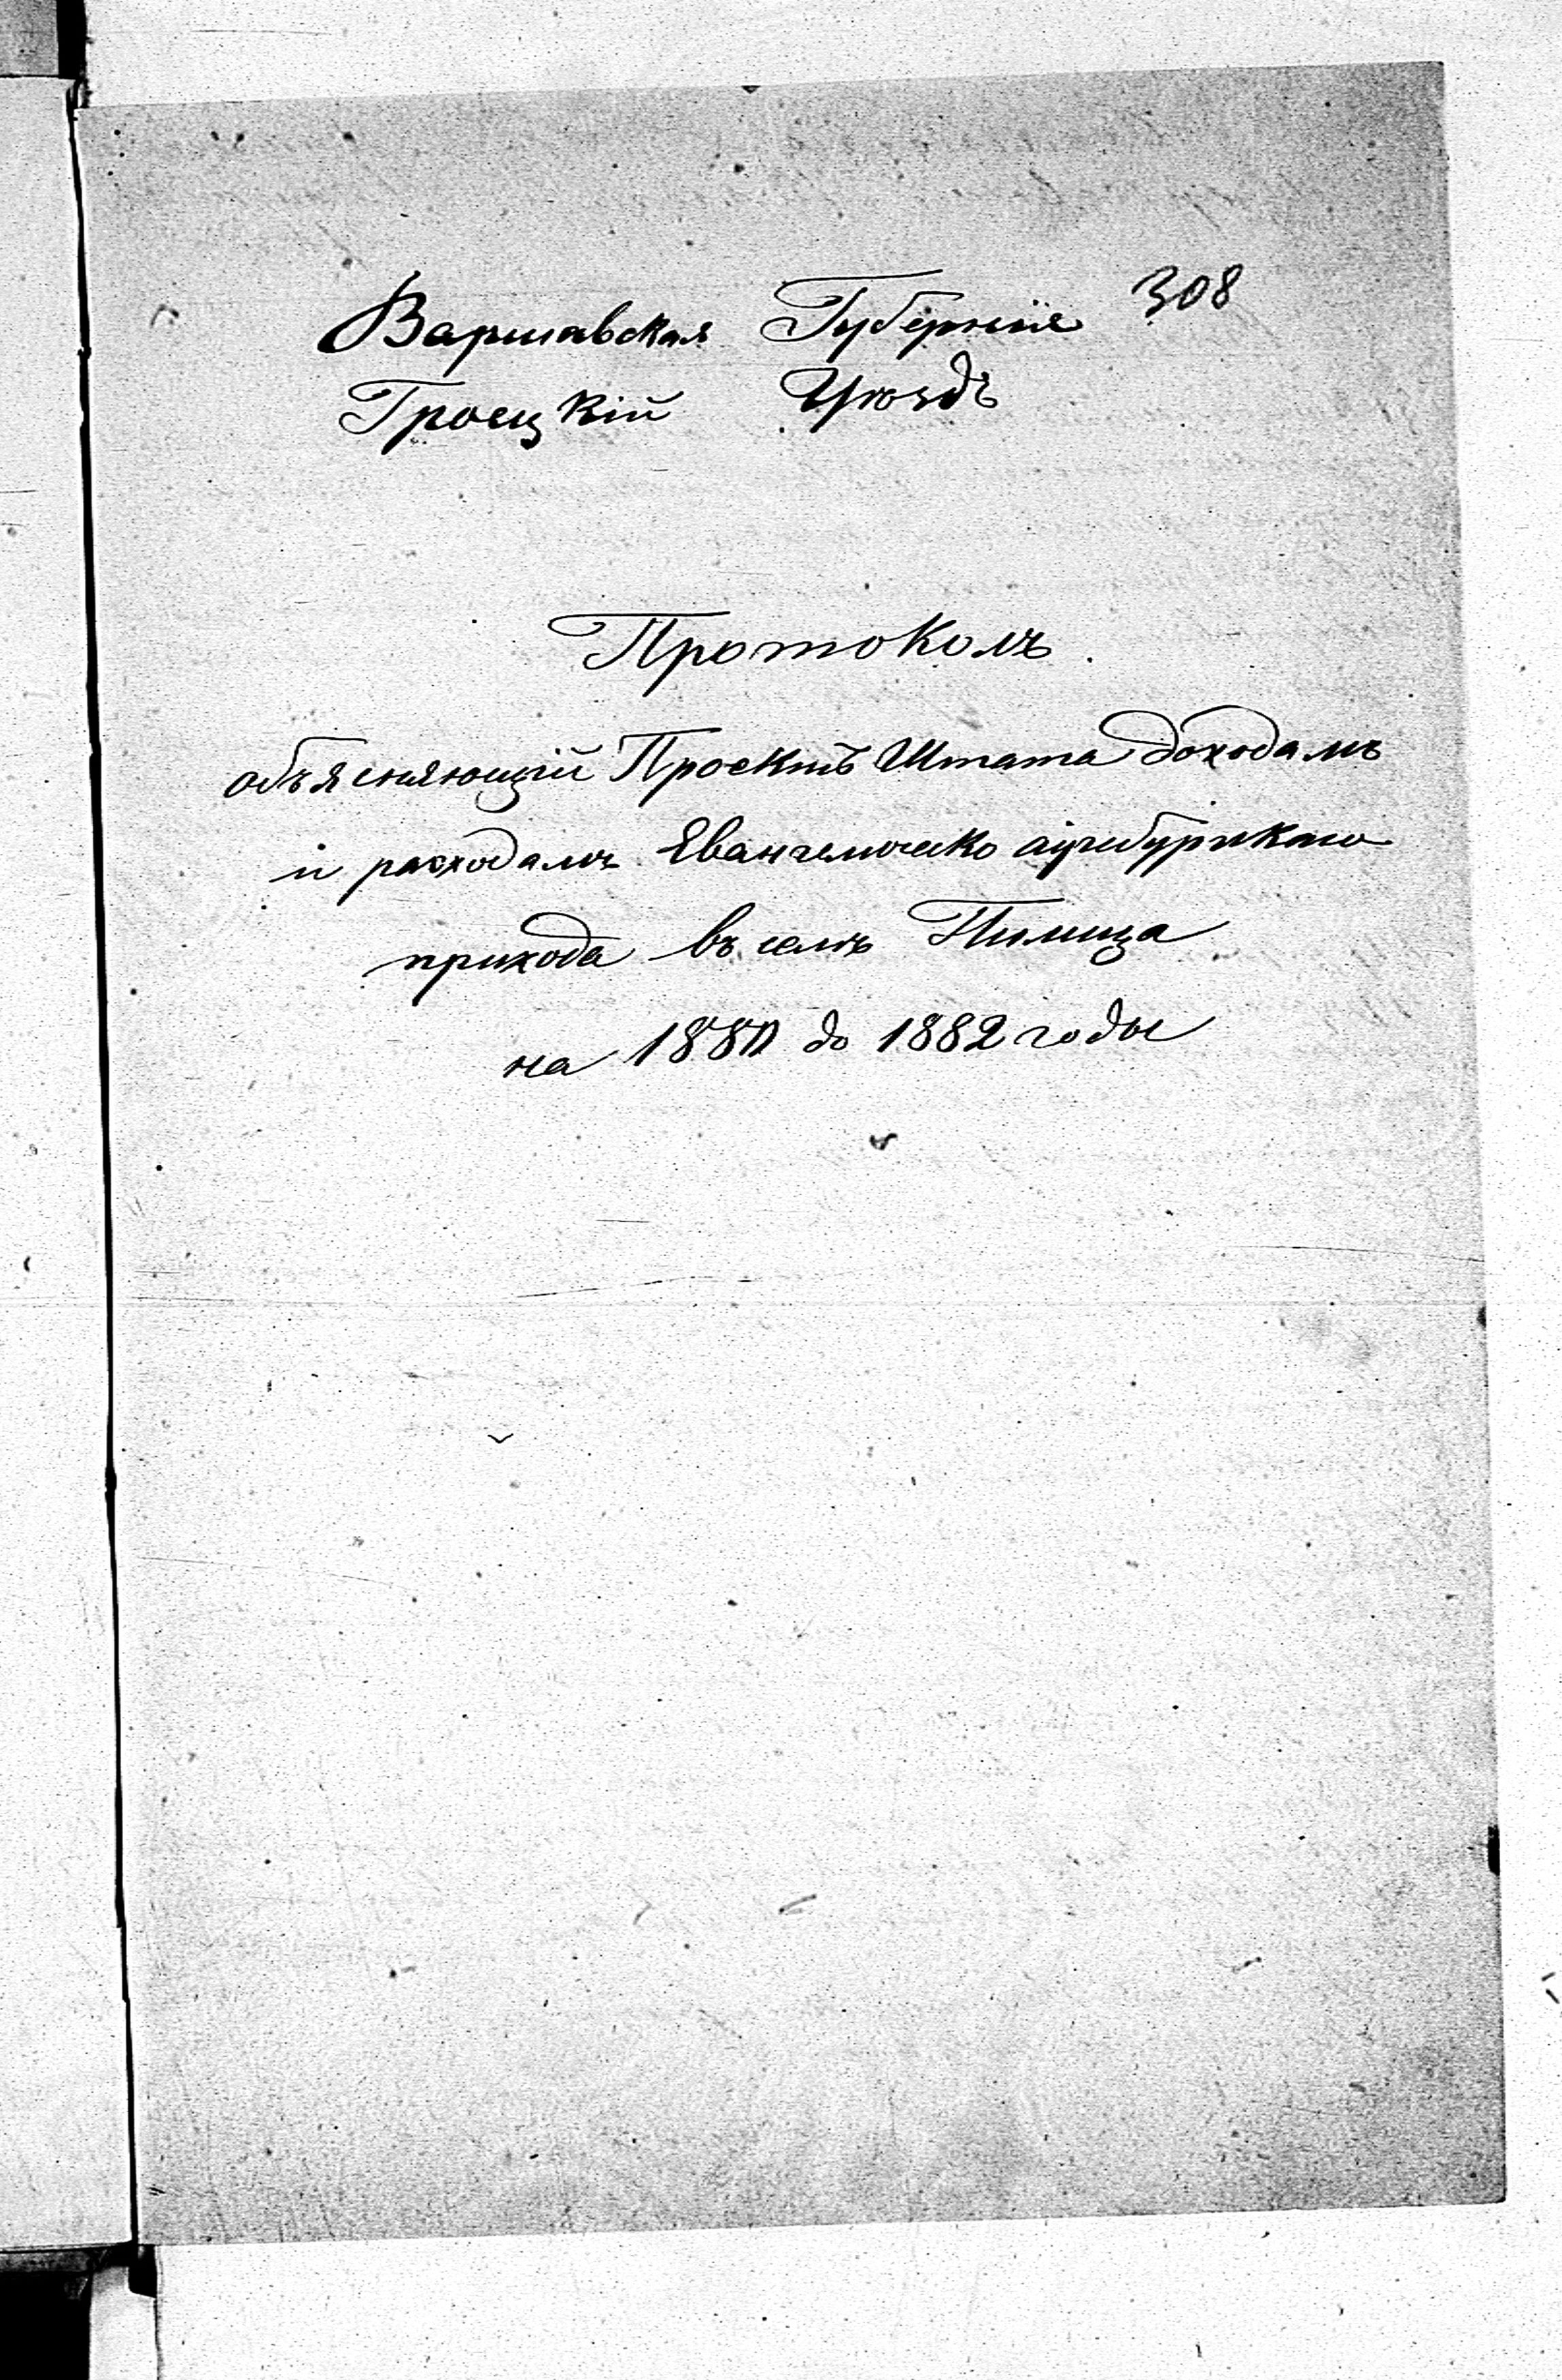 Варшавская Губернія 308
Гроецкій Уѣздъ
Протоколъ.
объясняющій Проектъ Штата доходамъ
и расходамъ Евангелическо аугсбургскаго
прихода въ селѣ Пилица
на 1880 до 1882 годы